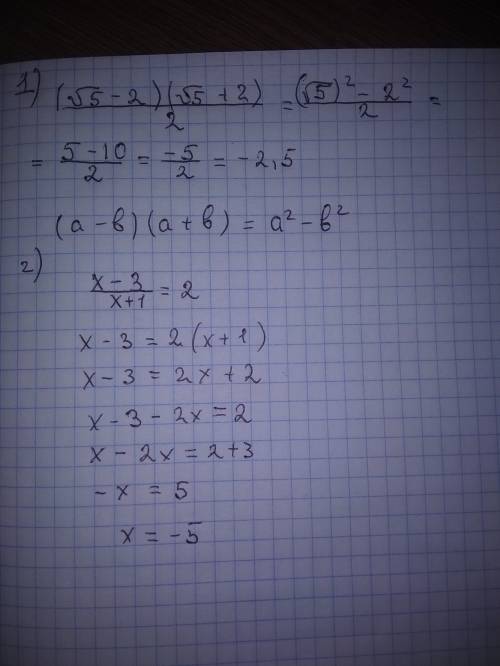 1) (√5 - 2)(√5 + 2) / 2 = (√5)² - 2² / 2 =
= 5 - 10 / 2 = -5 / 2 = -2,5
(a - в)(a + в) = a² - в²
2)
x - 3 / x + 1 = 2
x - 3 = 2(x + 1)
x - 3 = 2x + 2
x - 3 - 2x = 2
x - 2x = 2 + 3
-x = 5
x = -5